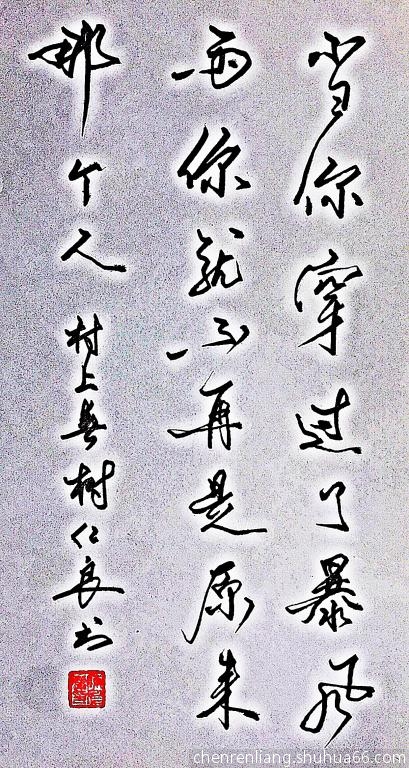 当你穿过了暴风
雨你就不再是原来
那个人
村上春树仁良书
chenrenliang.shuhua66.com